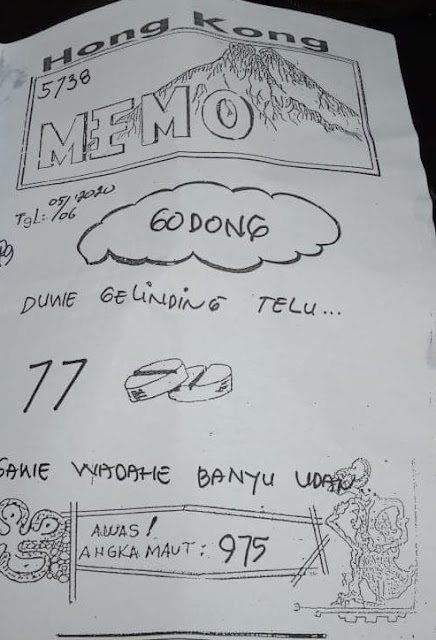 Hong Kong
5738
MEMO
TgL: 05/06/2020
GODONG
DUWE GELINDING TELU...
77
GAWE WADAHE BANYU UDAN
AWAS!
ANGKA MAUT: 975